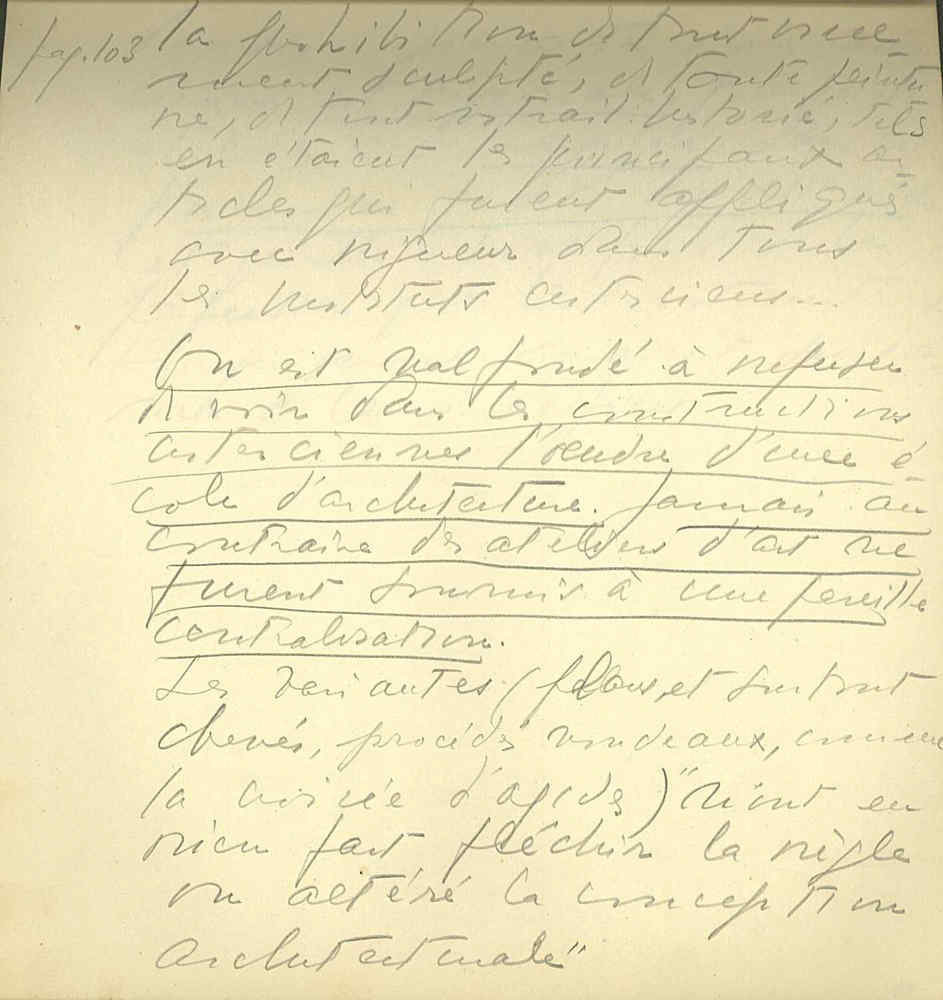 pag. 103 la prohibition de tout orne-
ment sculpté, de toute peintu
re, de tout vitrail historié, tels
en étaient les principaux ar-
ticles qui furent appliqués
avec rigueur dans tous
les instituts cisterciens...
On est mal fondé à refuser
de voir dans les constructions
cisterciennes l'oeuvre d'une é-
cole d'architecture. Jamais au
contraire des ateliers d'art ne
furent soumis à une pareille
centralisation.
Les variantes (plans, et surtout
chevés, procédés nouveaux, comme
la croisée d'ogives) "n'ont en
rien fait fléchir la règle
ou altéré la conception
architecturale"